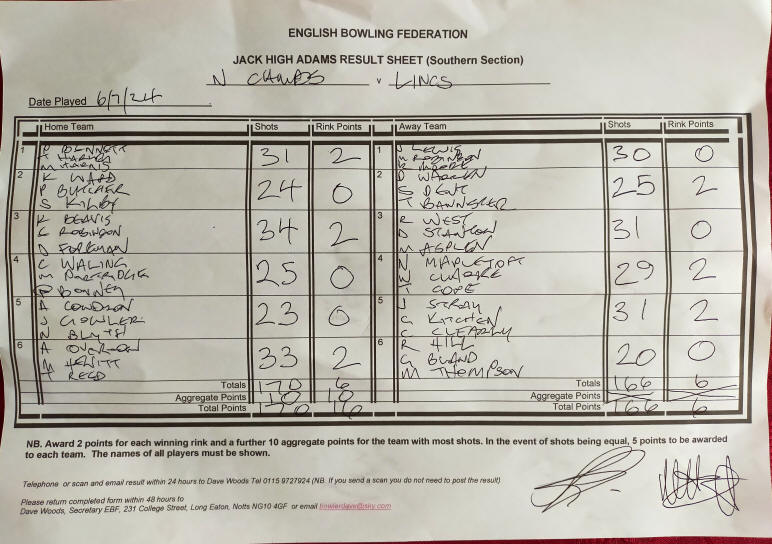 ENGLISH BOWLING FEDERATION
JACK HIGH ADAMS RESULT SHEET (Southern Section)
N CAMBS v LINCS
Date Played 6/7/24
Home Team Shots Rink Points Away Team Shots Rink Points
1 P BENNETT 31 2 1 J LEWIS 30 0
M HARRIS
2 K WARD 24 0 2 D WARREN 25 2
P BUTCHER S DENT
S KILBY T BANNISTER
3 K BEAVIS 34 2 3 R WEST 31 0
C ROBINSON D STANTON
D FOREMAN M ASPLEN
4 C WALING 25 0 4 N MAPLETOFT 29 2
M PARTRIDGE W
P BONNEY T COPE
5 A 23 0 5 J STRAY 31 2
J GOWLER C KITCHEN
N BLYTH C
6 A OVERSON 33 2 6 R HILL 20 0
M HEWITT G BLAND
T REED M THOMPSON
Totals 170 6 Totals 166 6
Aggregate Points 10 10 Aggregate Points
Total Points 170 16 Total Points 166 6
NB. Award 2 points for each winning rink and a further 10 aggregate points for the team with most shots. In the event of shots being equal, 5 points to be awarded
to each team. The names of all players must be shown.
Telephone or scan and email result within 24 hours to Dave Woods Tel 0115 9727924 (NB. If you send a scan you do not need to post the result)
Please return completed form within 48 hours to
Dave Woods, Secretary EBF, 231 College Street, Long Eaton, Notts NG10 4GF or email trowlerdave@sky.com